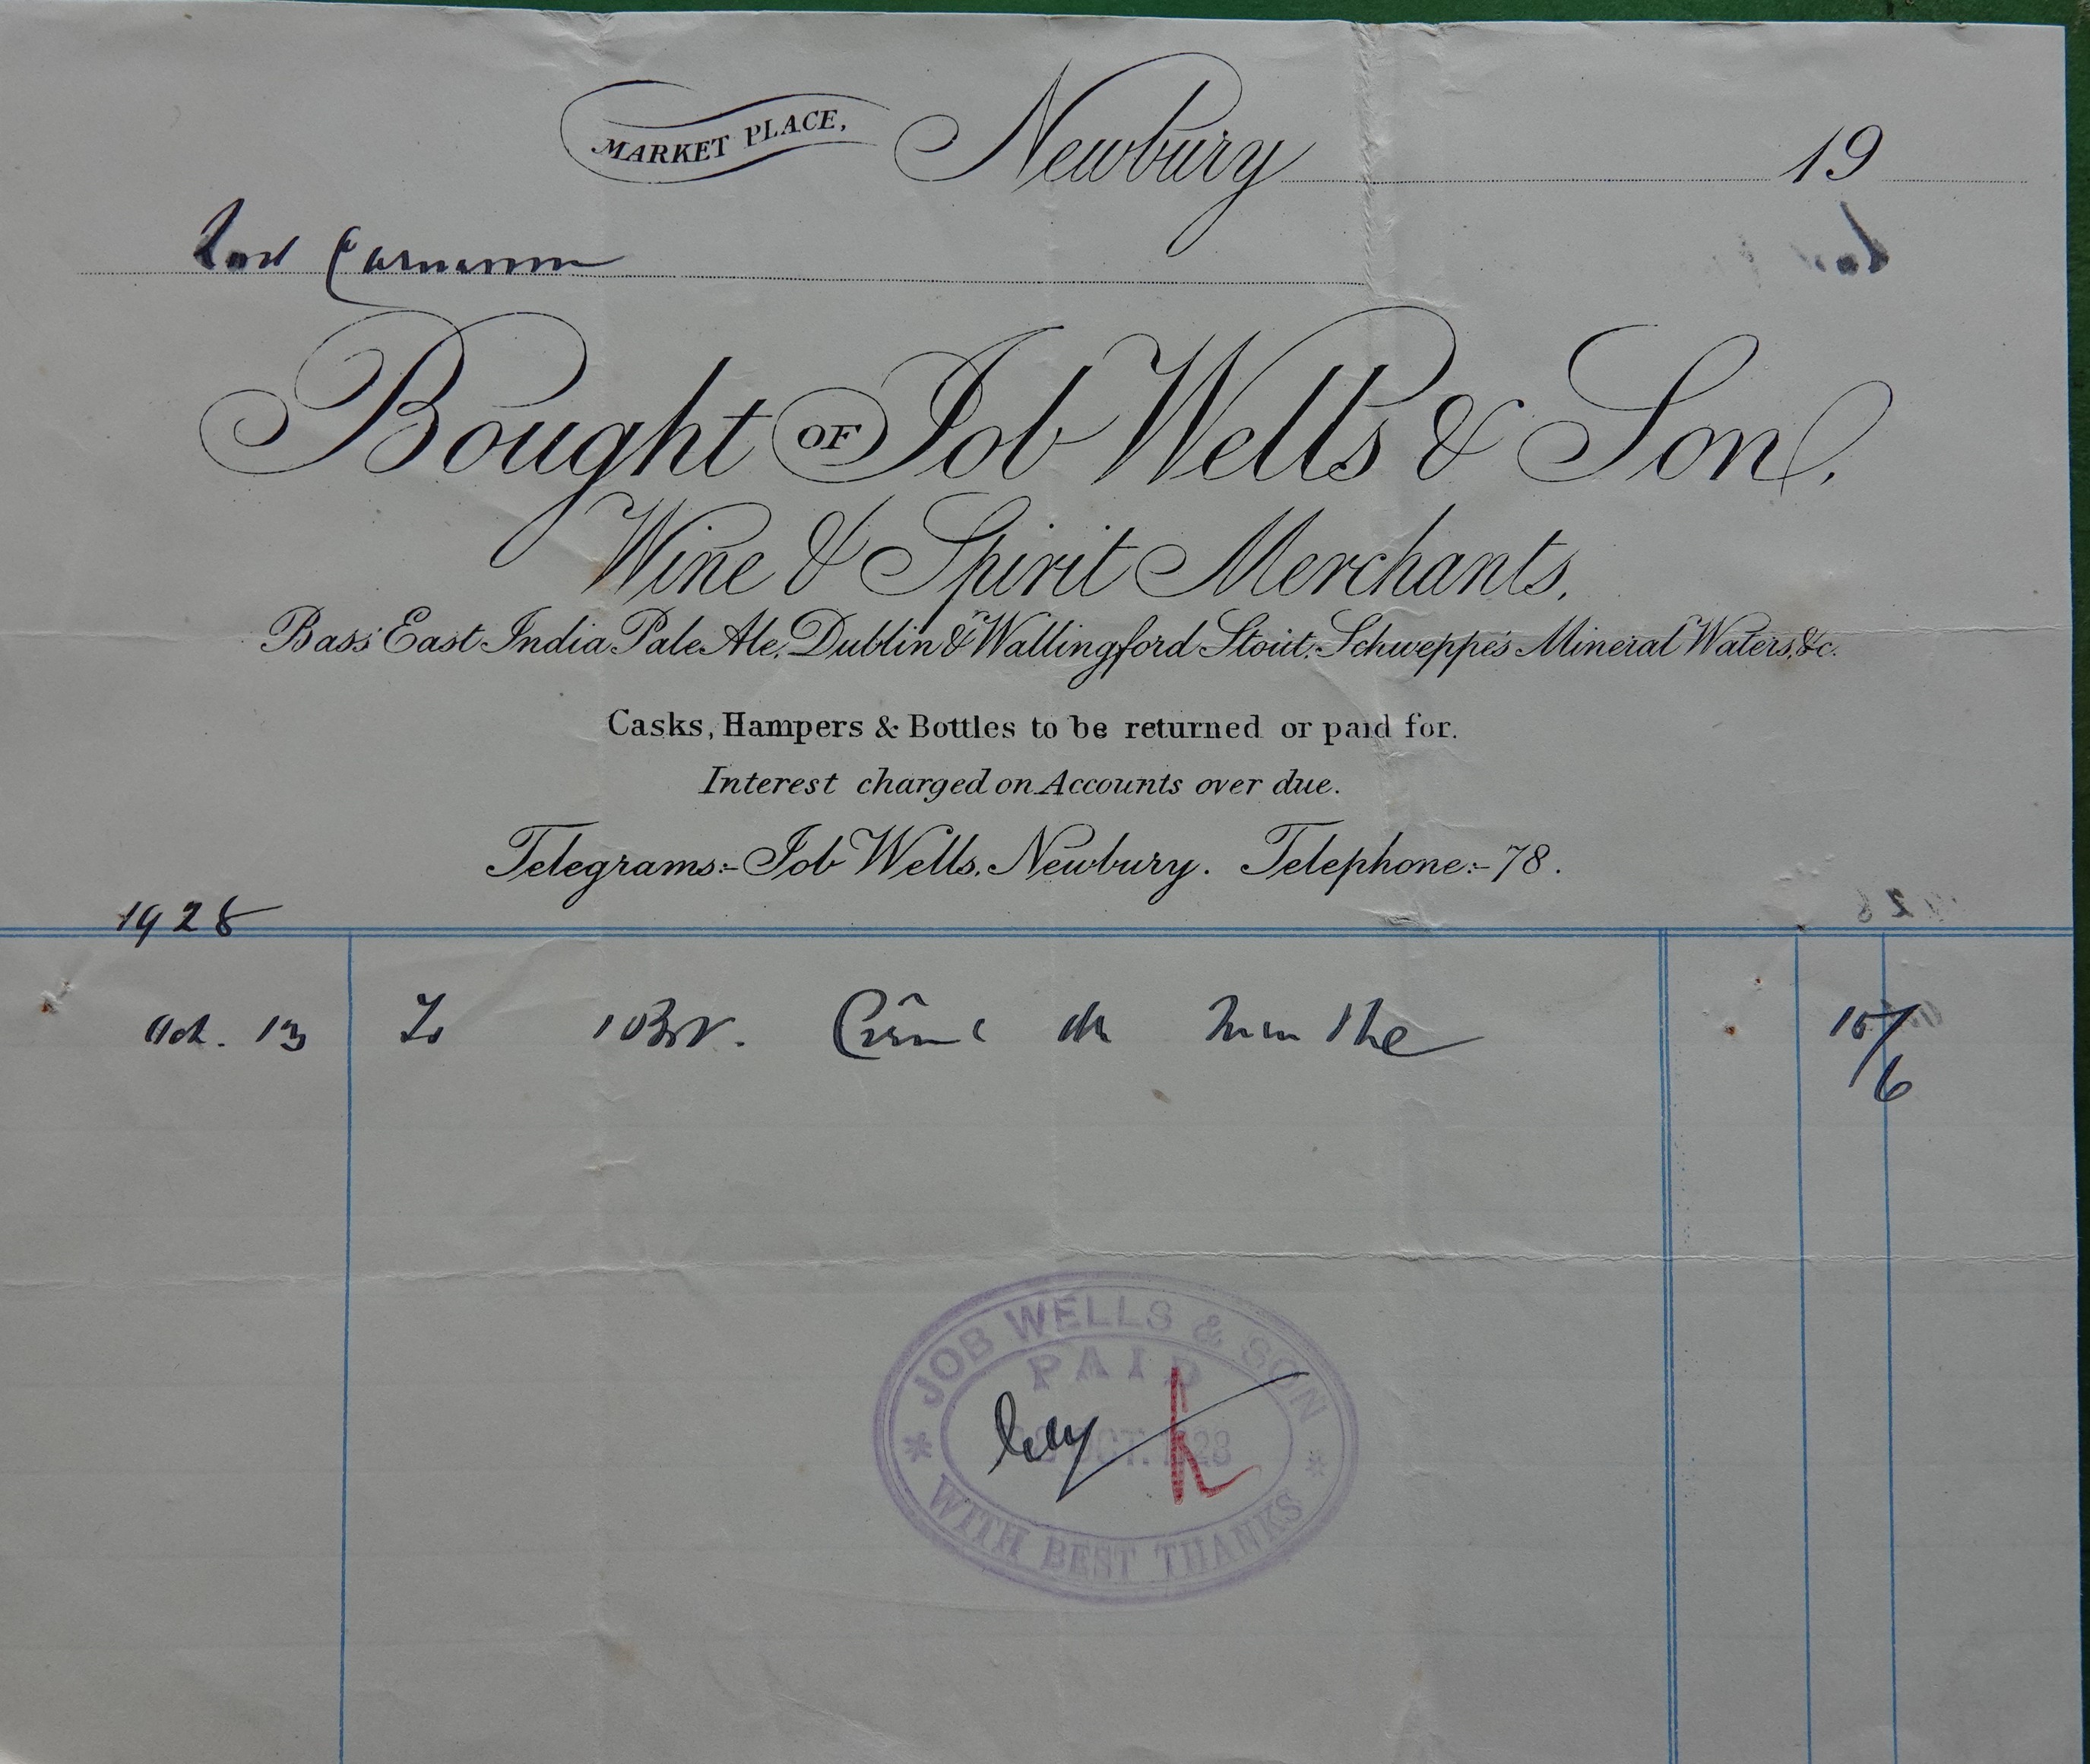 MARKET PLACE, Newbury 19
Lord Carnarvon
Bought OF Job Wells & Son,
Wine & Spirit Merchants.
Bass' East India Pale Ale, Dublin & Wallingford Stout, Schweppe's Mineral Waters, &c.
Casks, Hampers & Bottles to be returned or paid for.
Interest charged on Accounts over due.
Telegrams:- Job Wells, Newbury. Telephone:- 78.
1928
Oct. 13 To 1 Crême de Menthe 15/6
JOB WELLS & SON
PAID
OCT. 1928
WITH BEST THANKS